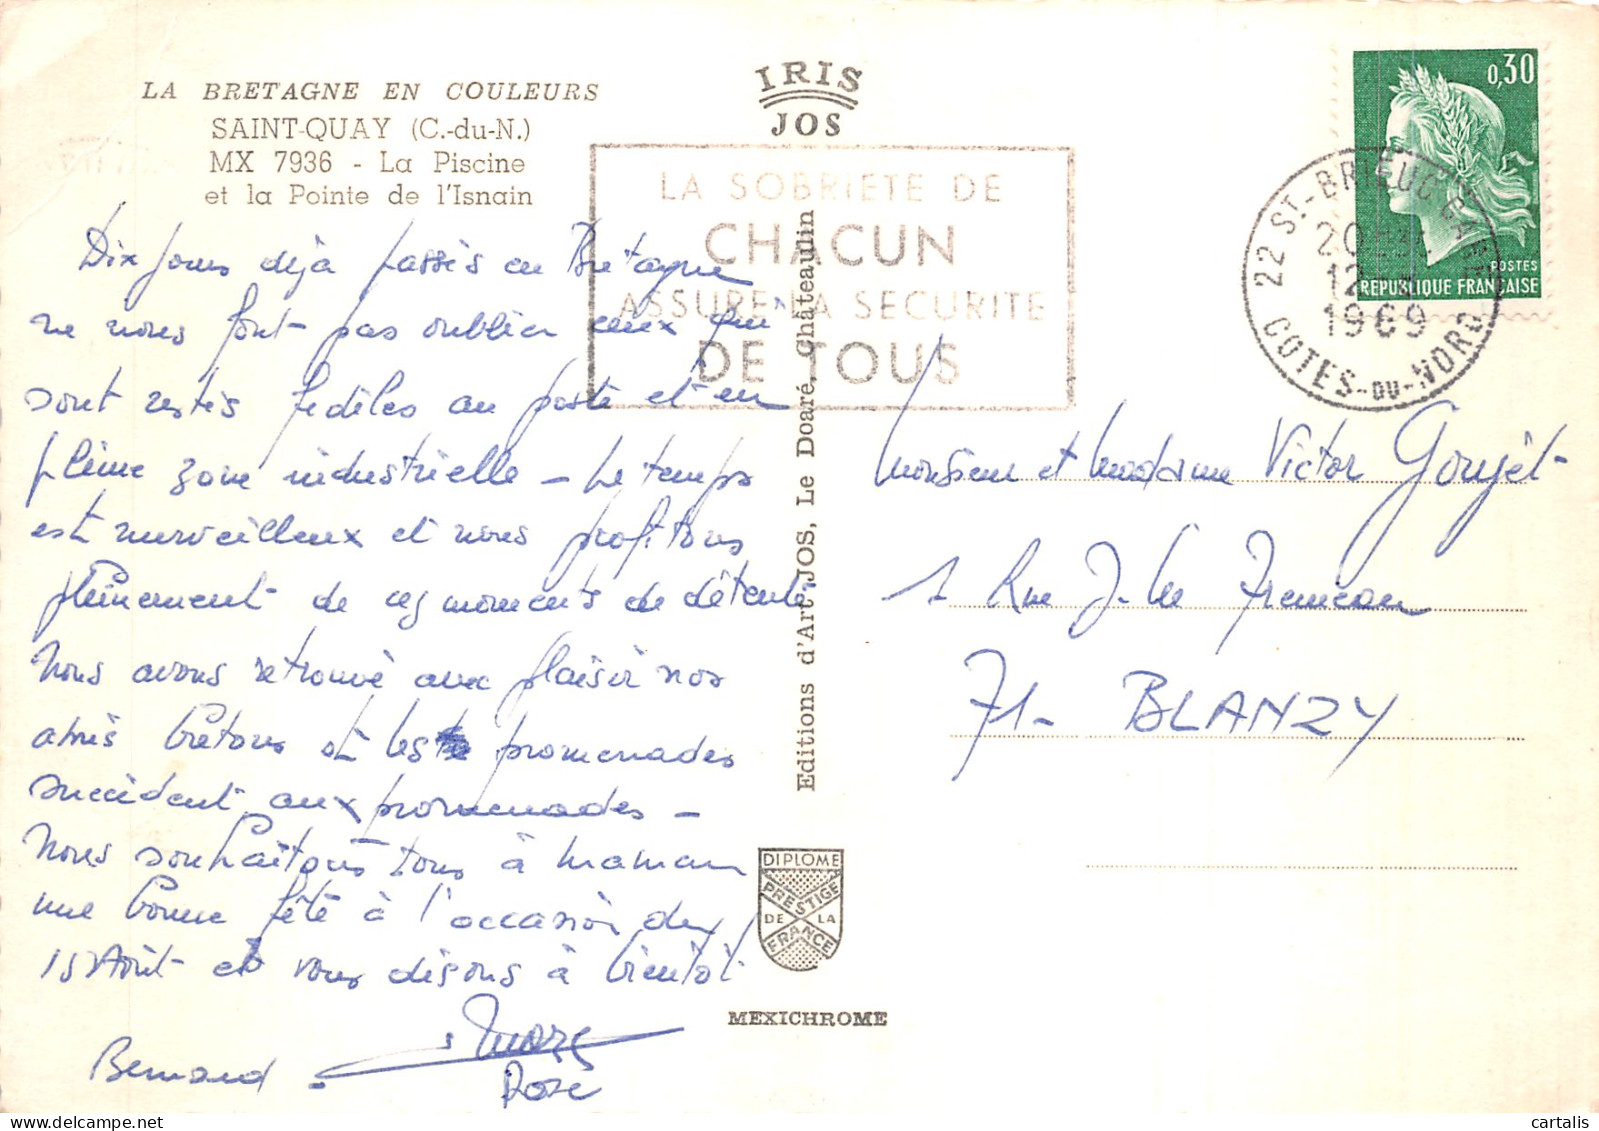 LA BRETAGNE EN COULEURS
SAINT-QUAY (C.-du-N.)
MX 7936 - La Piscine
et la Pointe de l'Isnain
IRIS
JOS
LA SOBRIETE DE
CHACUN
ASSURE LA SECURITE
DE TOUS
0,30
POSTES
REPUBLIQUE FRANÇAISE
22 ST-BRIEUC GARE
20
12
1969
COTES-DU-NORD
Dix jours déjà passés en Bretagne
ne nous font pas oublier ceux qui
sont restés fidèles au poste et en
pleine zone industrielle - Le temps
est merveilleux et nous profitons
pleinement de ces moments de détente
Nous avons retrouvé avec plaisir nos
amis bretons et les promenades
succèdent aux promenades -
Nous souhaitons tous à maman
une bonne fête à l'occasion du
15 Août et vous disons à bientôt
Bernard
Rose
Monsieur et Madame Victor Goujet
1 Rue J. Le
71 - BLANZY
Editions d'Art JOS, Le Doaré, Châteaulin
DIPLOME
PRESTIGE
DE LA
FRANCE
MEXICHROME
cartalis